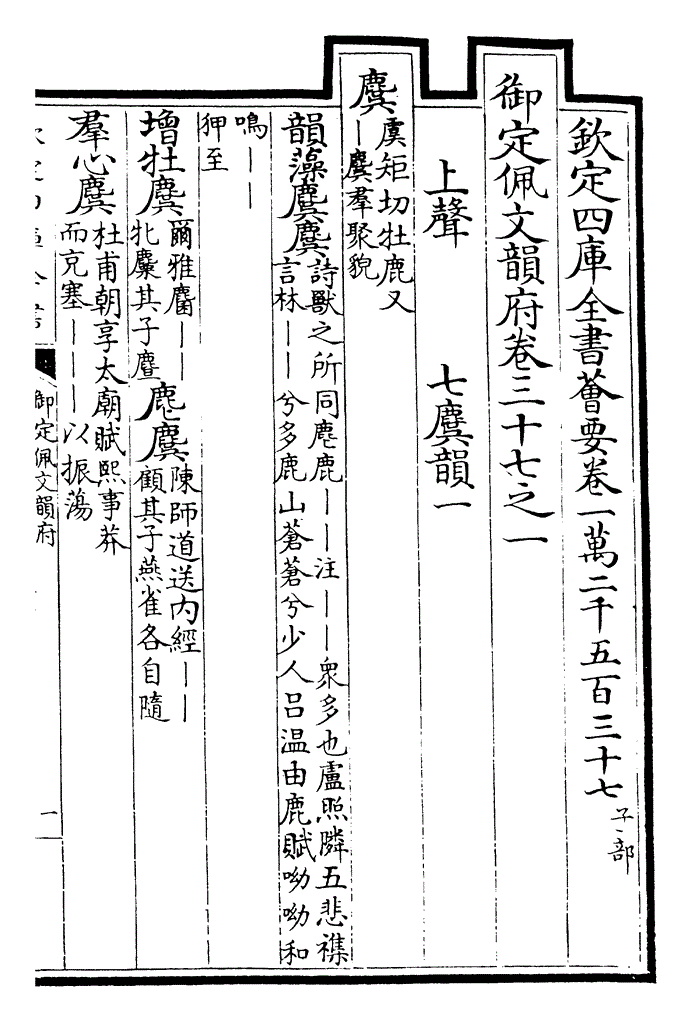 欽定四庫全書薈要卷一萬二千五百三十七 子部
御定佩文韻府卷三十七之一
上聲 七麌韻一
麌 虞矩切牡鹿又
｜麌羣聚貌
韻藻麌麌 詩獸之所同麀鹿｜｜注｜｜衆多也盧照隣五悲襍
言林｜｜兮多鹿山蒼蒼兮少人呂温由鹿賦呦呦和
鳴｜｜
狎至
增牡麌 爾雅麕｜｜
牝麜其子麆
麀麌 陳師道送内經｜｜
顧其子燕雀各自隨
羣心麌 杜甫朝享太廟賦熙事莽
而充塞｜｜｜以振蕩
欽定四庫全書
御定佩文韻府
一